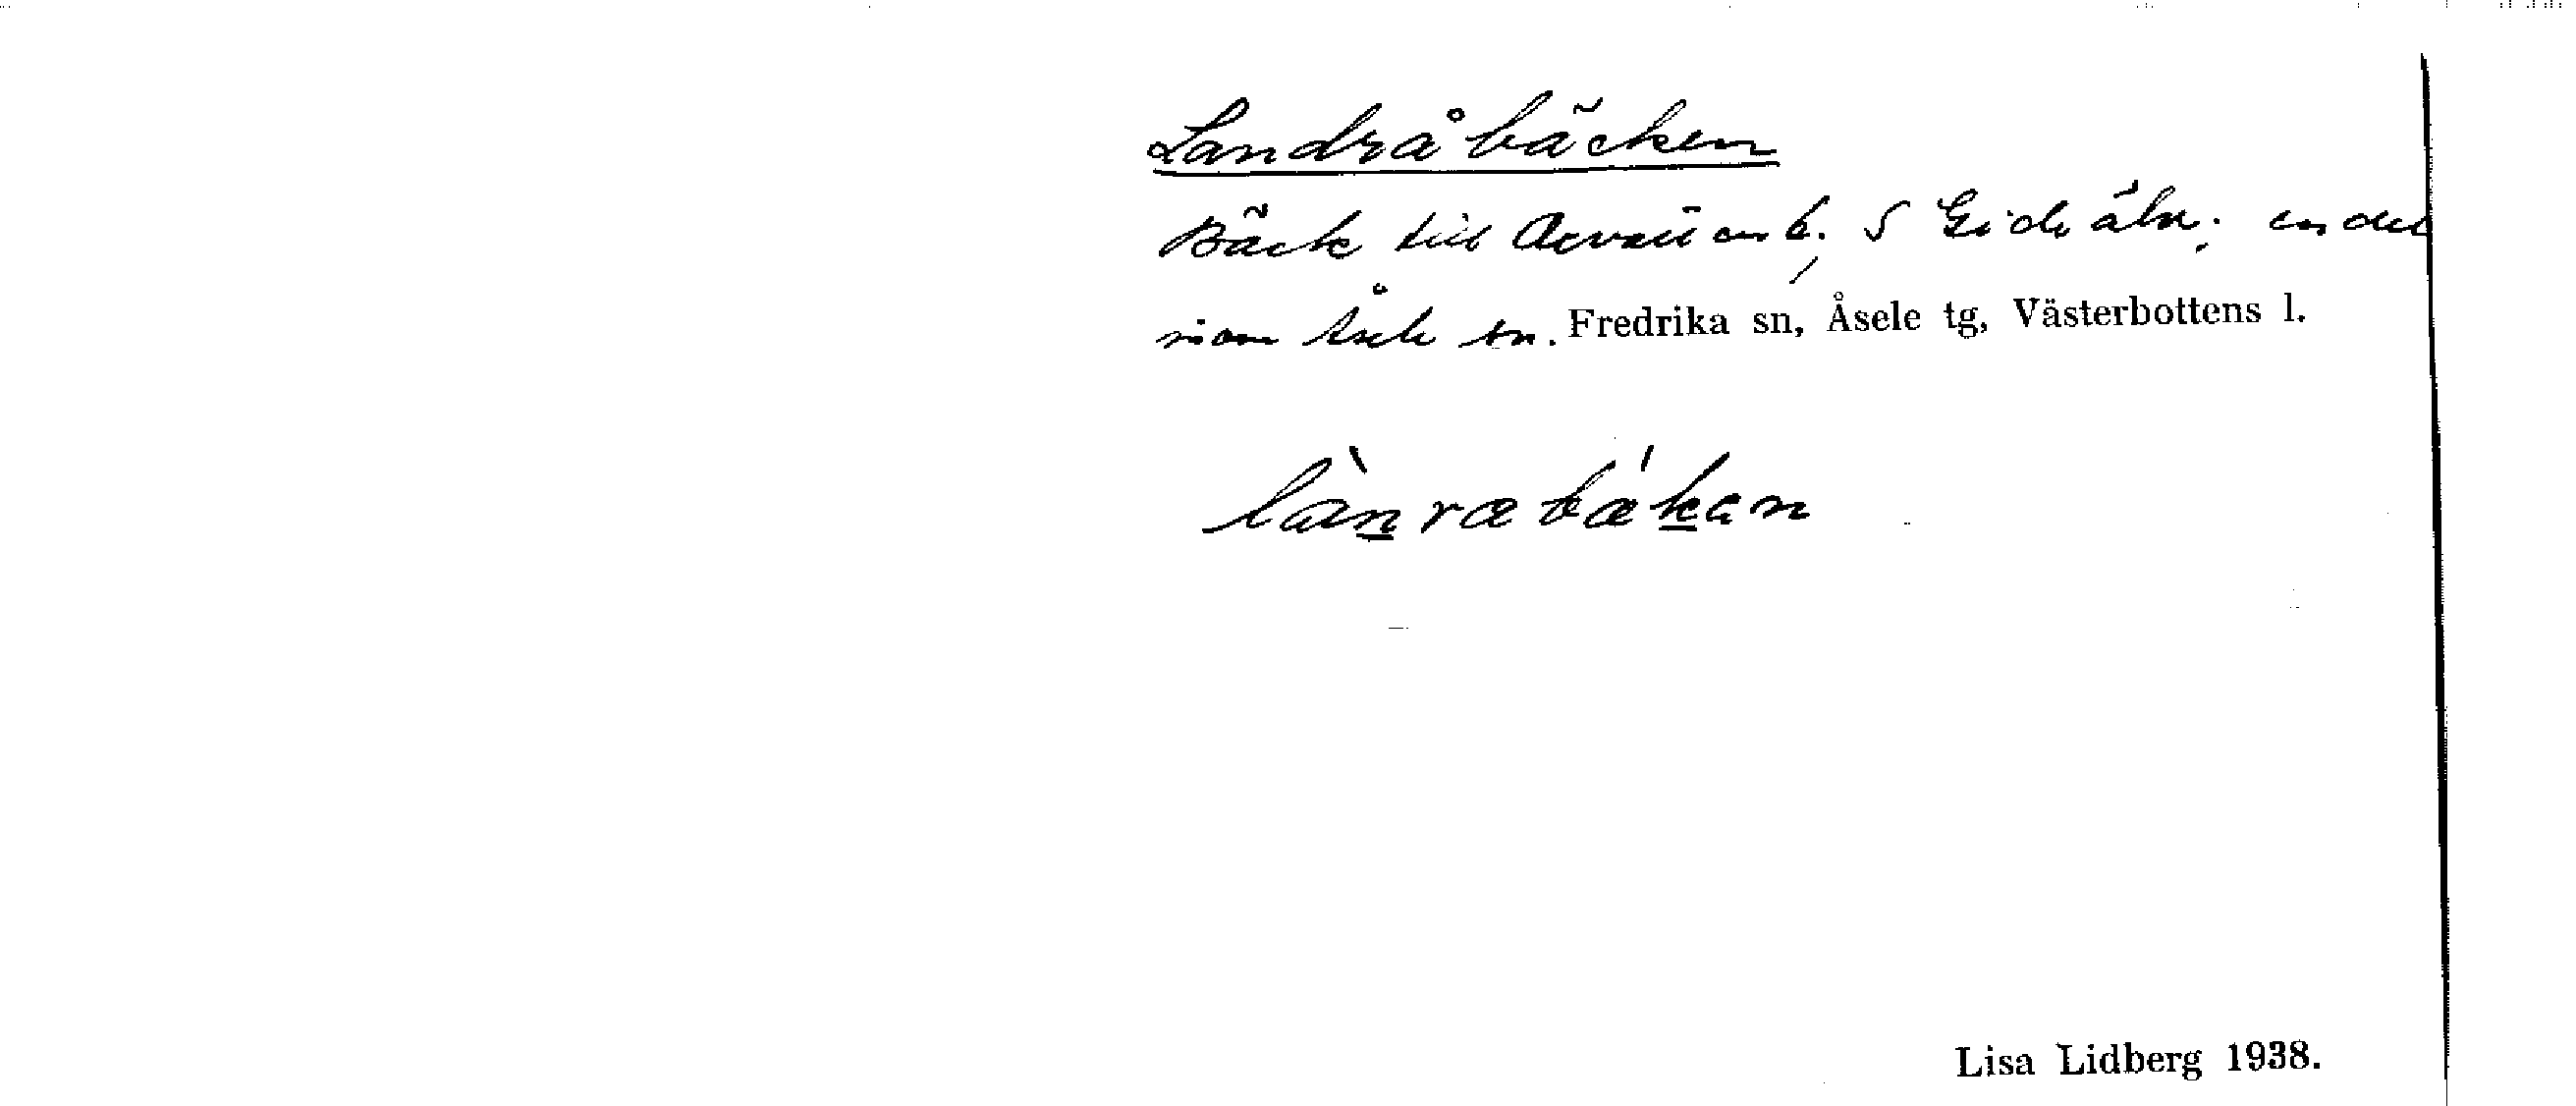 Landråbäcken
Bäck till b. S Gideälv; en del
inom Åsele sn. Fredrika sn, Åsele tg, Västerbottens l.
lànrabákan
Lisa Lidberg 1938.